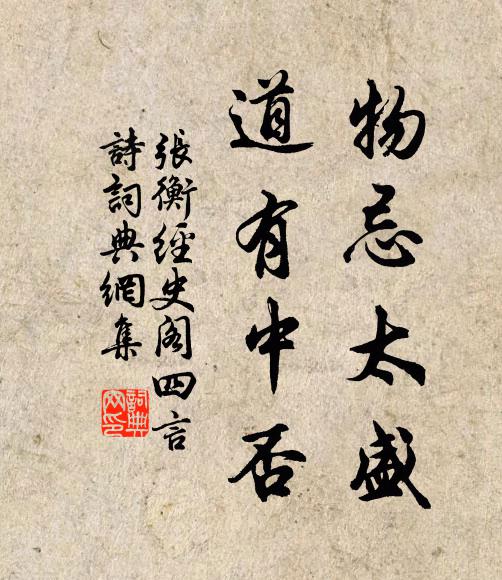 物忌太盛
道有中否
張衡經史閣四言
詩詞典網集
詞典網印